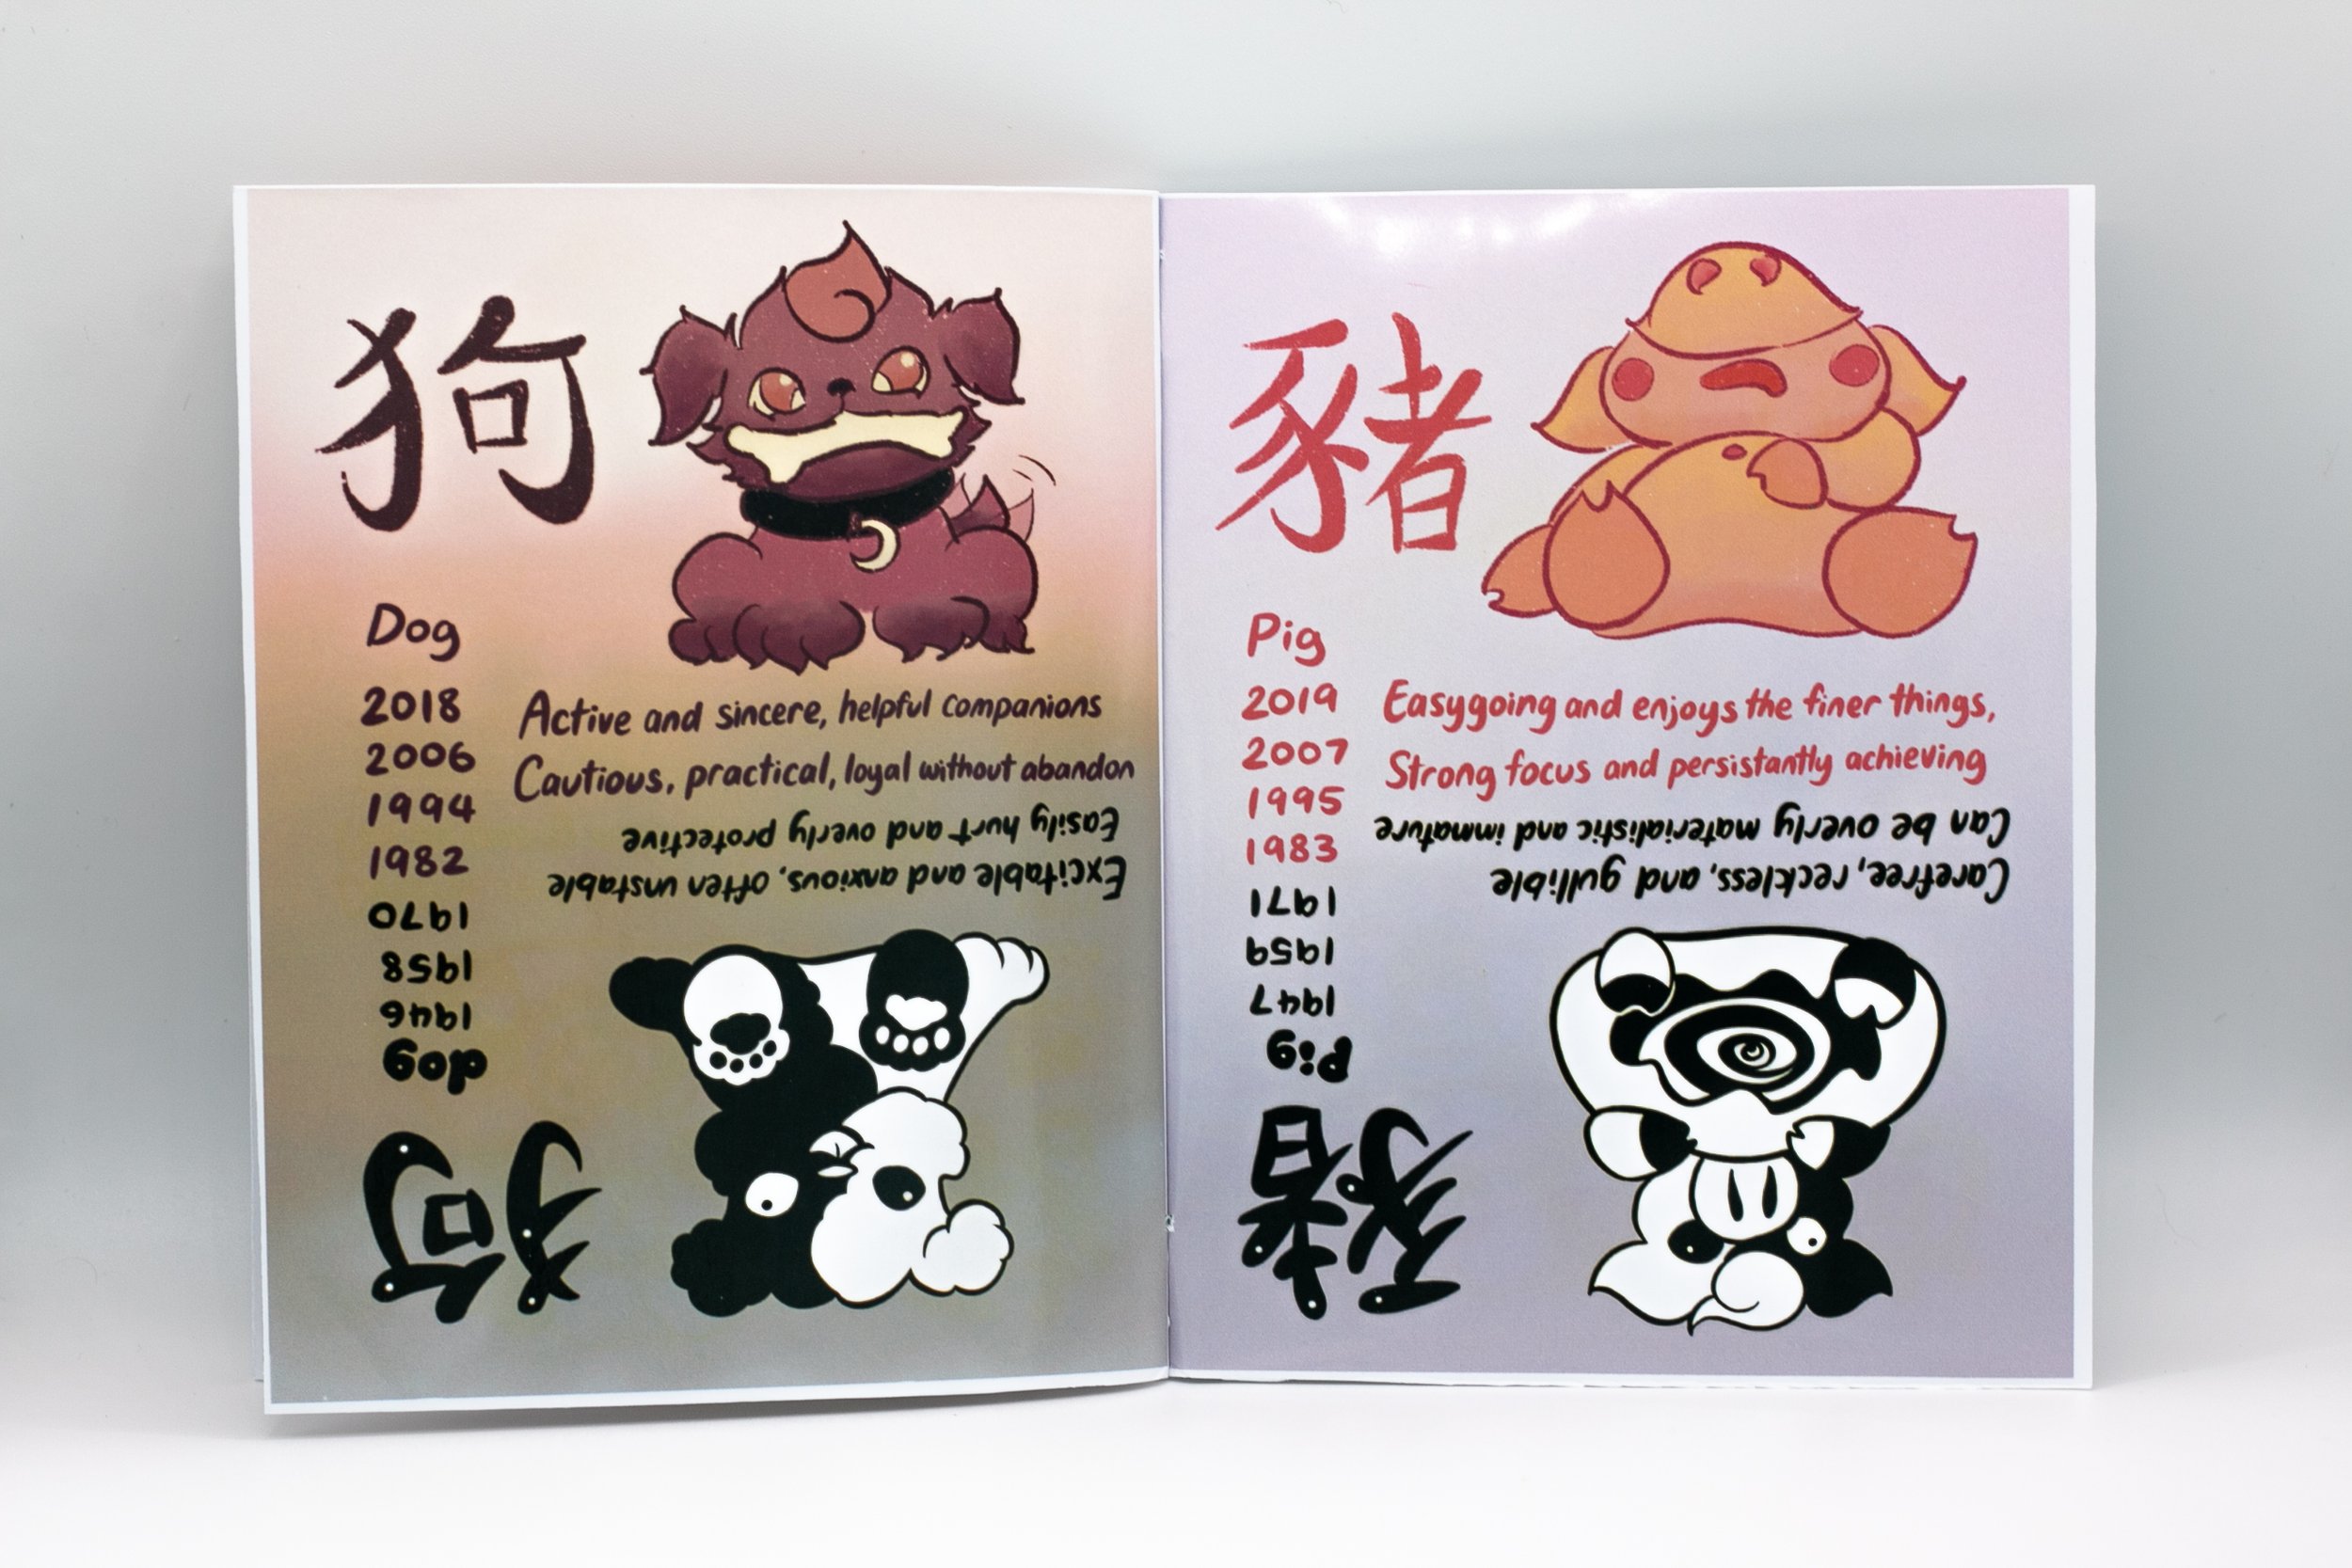 狗
Dog
2018
2006
1994
1982
Active and sincere, helpful companions
Cautious, practical, loyal without abandon
狗
dog
1946
1958
1970
Excitable and anxious, often unstable
Easily hurt and overly protective
豬
Pig
2019
2007
1995
1983
Easygoing and enjoys the finer things,
Strong focus and persistantly achieving
豬
Pig
1947
1959
1971
Carefree, reckless, and gullible
Can be overly materialistic and immature